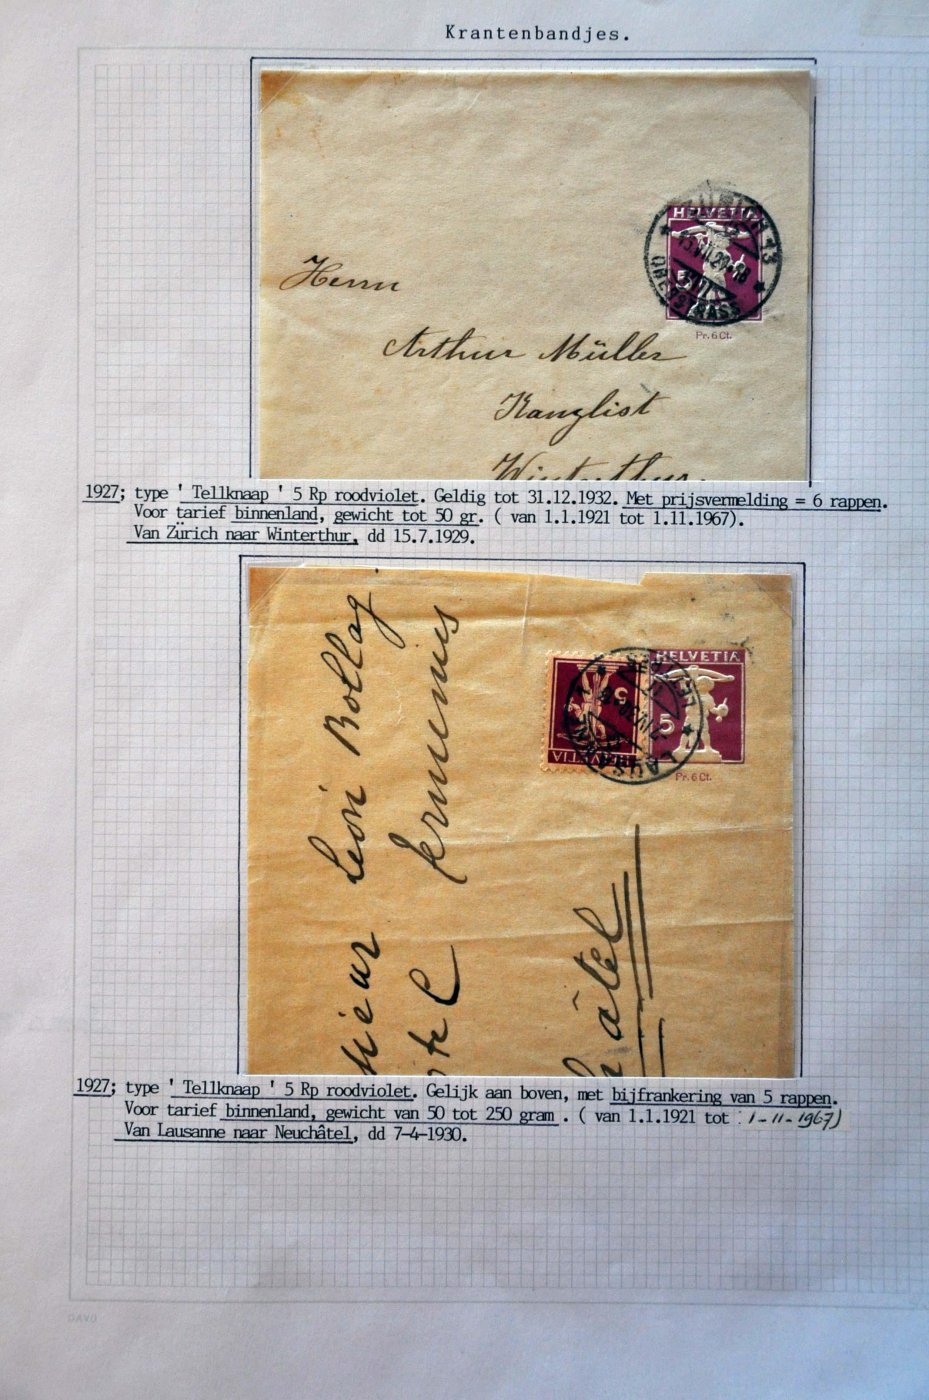 Krantenbandjes.
ZÜRICH 13
HELVETIA
15.VII.29-18
5
OBERSTRASS
Pr. 6 Ct.
Herrn
Arthur Müller
Kanzlist
Winterthur.
1927; type ' Tellknaap ' 5 Rp roodviolet. Geldig tot 31.12.1932. Met prijsvermelding = 6 rappen.
Voor tarief binnenland, gewicht tot 50 gr. ( van 1.1.1921 tot 1.11.1967).
Van Zürich naar Winterthur, dd 15.7.1929.
Léon Bollag
HELVETIA
5
HELVETIA
5
LAUSANNE
Pr. 6 Ct.
âtel
1927; type ' Tellknaap ' 5 Rp roodviolet. Gelijk aan boven, met bijfrankering van 5 rappen.
Voor tarief binnenland, gewicht van 50 tot 250 gram . ( van 1.1.1921 tot 1-11-1967)
Van Lausanne naar Neuchâtel, dd 7-4-1930.
DAVO